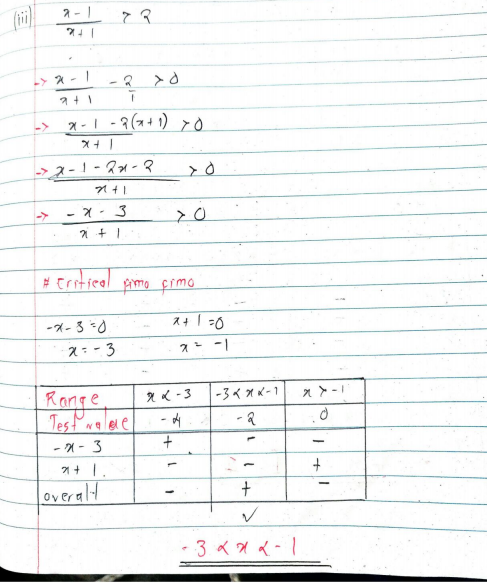 (iii) x-1/x+1 > 2
-> x-1/x+1 - 2/1 > 0
-> x-1-2(x+1)/x+1 > 0
-> x-1-2x-2/x+1 > 0
-> -x-3/x+1 > 0
# Critical
-x-3=0 x+1=0
x=-3 x=-1
Range x<-3 -3<x<-1 x>-1
Test value -4 -2 0
-x-3 + - -
x+1 - - +
overall - + -
✓
-3<x<-1